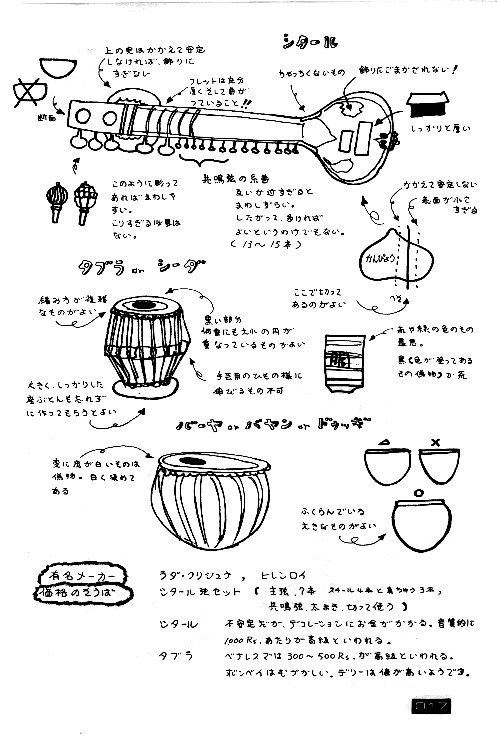 シタール
上の更はかかえて安定
しなければ、飾りに
すぎない
フレットは充分
厚くそして角が
ついていること!!
ちゃっちくないもの
飾りにごまかされない!
断面
しっかりと厚い
このように彫って
あればまわしや
すい。
こりすぎる必要は
ない。
共鳴弦の糸巻
互いが近すぎると
まわしずらい。
したがって、多ければ
よいというわけでもない。
(13〜15本)
かかえて安定しない
表面が小で
すぎる
かんぴょう
ここで切って
あるのがよい
タブラ or シーダ
編み方が複雑
なものがよい
黒い部分
何重にも大小の円が
重なっているものがよい
手芸用のひもの様に
伸びるもの不可
大きく、しっかりした
座ぶとんも忘れず
に作ってもらうとよい
赤や緑の色のもの
最悪。
黒(色が塗ってある
もの偽物)か茶
バーヤ or バヤン or ドゥッギ
変に皮が白いものは
偽物。白く染めて
ある
△ ×
○
ふくらんでいる
大きなものがよい
有名メーカー
ラダ・クリシュナ, ヒレンロイ
価格のそうば
シタール弦セット(主弦、7本 スチール4本と真ちゅう3本,
共鳴弦、太まき、切って使う)
シタール 不安定だが、デコレーションにお金がかかる。音質的に
1000 Rs. あたりが高級といわれる。
タブラ ベナレスでは300〜500 Rs. が高級といわれる。
ボンベイはむづかしい、デリーは値が高いようです。
017